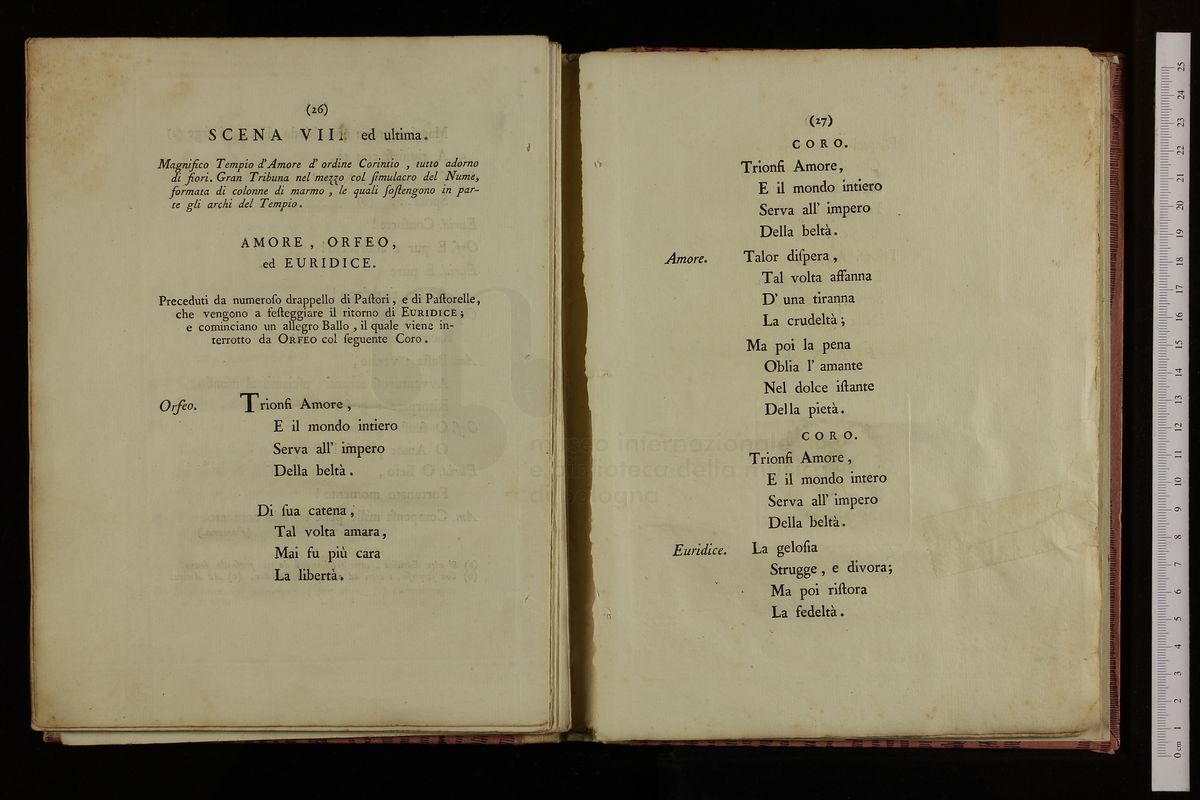 (26)
SCENA VII. ed ultima.
Magnifico Tempio d'Amore d' ordine Corintio , tutto adorno
di fiori. Gran Tribuna nel mezzo col ſimulacro del Nume,
formata di colonne di marmo , le quali ſoſtengono in par-
te gli archi del Tempio.
AMORE , ORFEO,
ed EURIDICE.
Preceduti da numeroſo drappello di Paſtori , e di Paſtorelle,
che vengono a feſteggiare il ritorno di EURIDICE ;
e cominciano un allegro Ballo , il quale viene in-
terrotto da ORFEO col ſeguente Coro .
Orfeo. Trionfi Amore ,
E il mondo intiero
Serva all' impero
Della beltà .
Di ſua catena ,
Tal volta amara,
Mai fu più cara
La libertà.
(27)
CORO.
Trionfi Amore,
E il mondo intiero
Serva all' impero
Della beltà.
Amore. Talor diſpera ,
Tal volta affanna
D' una tiranna
La crudeltà ;
Ma poi la pena
Oblia l' amante
Nel dolce iſtante
Della pietà.
CORO.
Trionfi Amore ,
E il mondo intero
Serva all' impero
Della beltà.
Euridice. La geloſia
Strugge , e divora;
Ma poi riſtora
La fedeltà .
museo internazionale
e biblioteca della musica
di bologna
0 cm 1 2 3 4 5 6 7 8 9 10 11 12 13 14 15 16 17 18 19 20 21 22 23 24 25